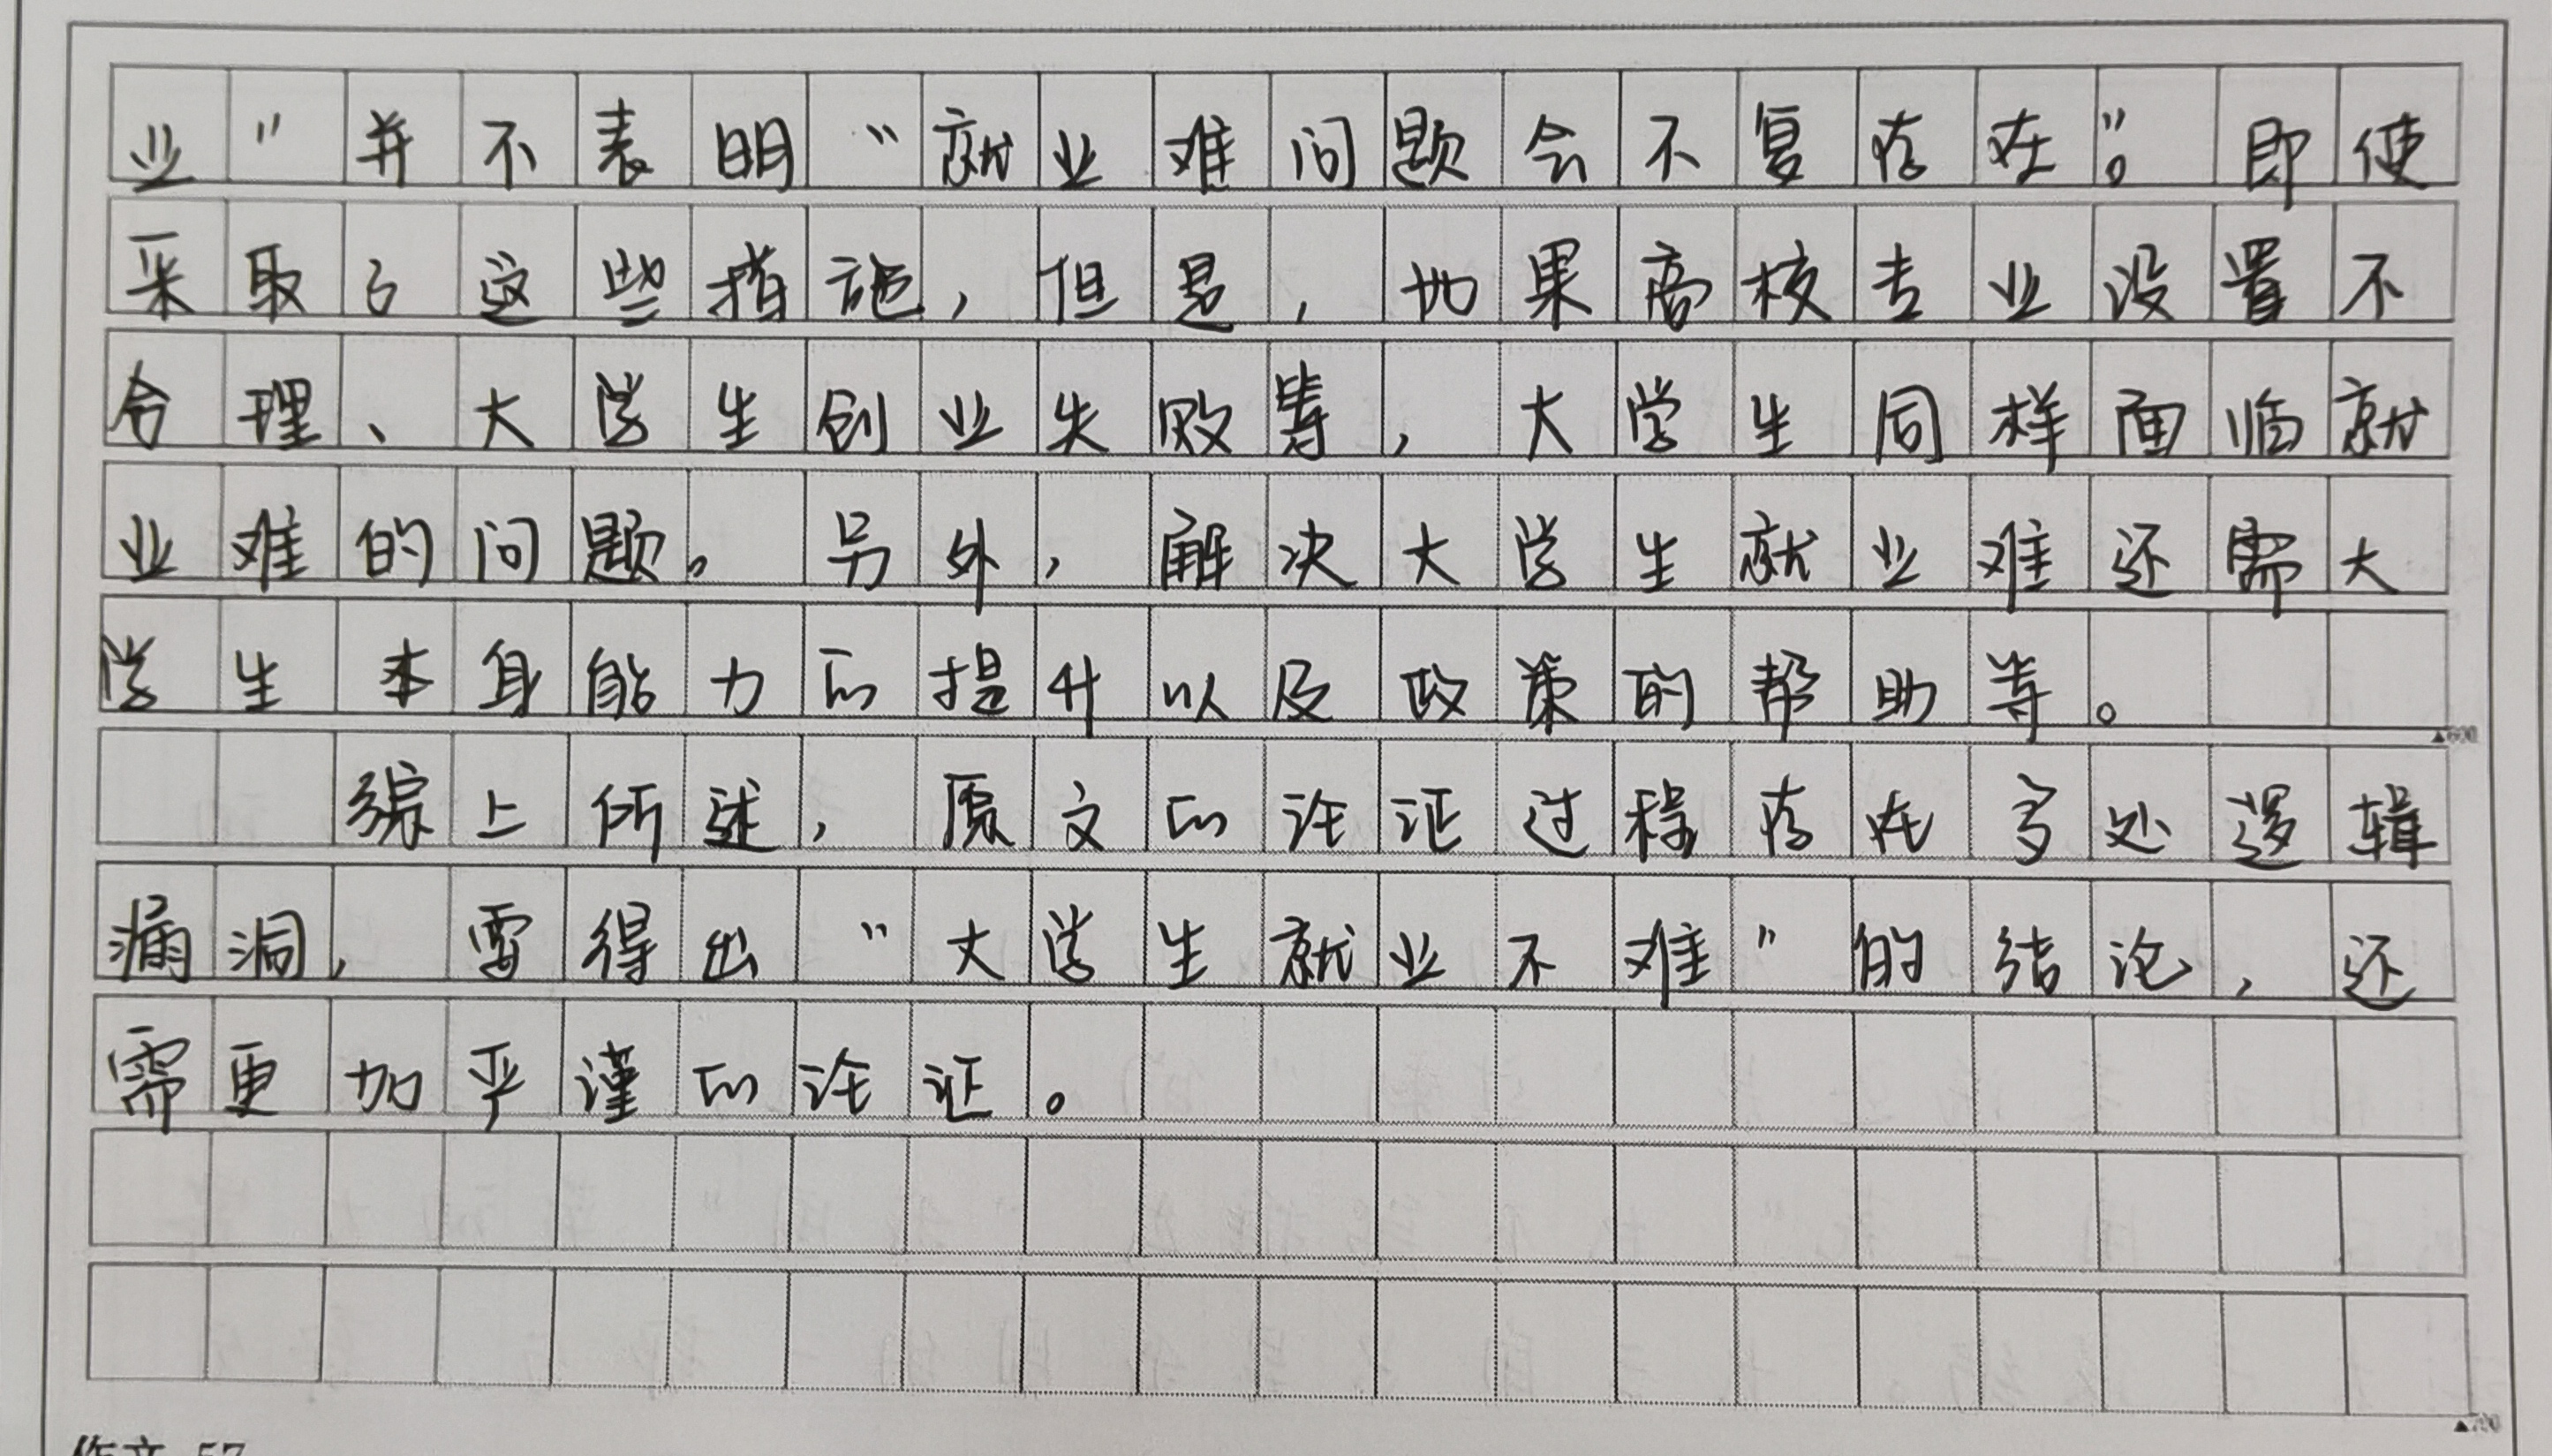 业"并不表明"就业难问题会不复存在"。即使
采取了这些措施，但是，如果高校专业设置不
合理、大学生创业失败等，大学生同样面临就
业难的问题。另外，解决大学生就业难还需大
学生本身能力的提升以及政策的帮助等。
▲600
综上所述，原文的论证过程存在多处逻辑
漏洞，要得出"大学生就业不难"的结论，还
需更加严谨的论证。
▲700
作文 57